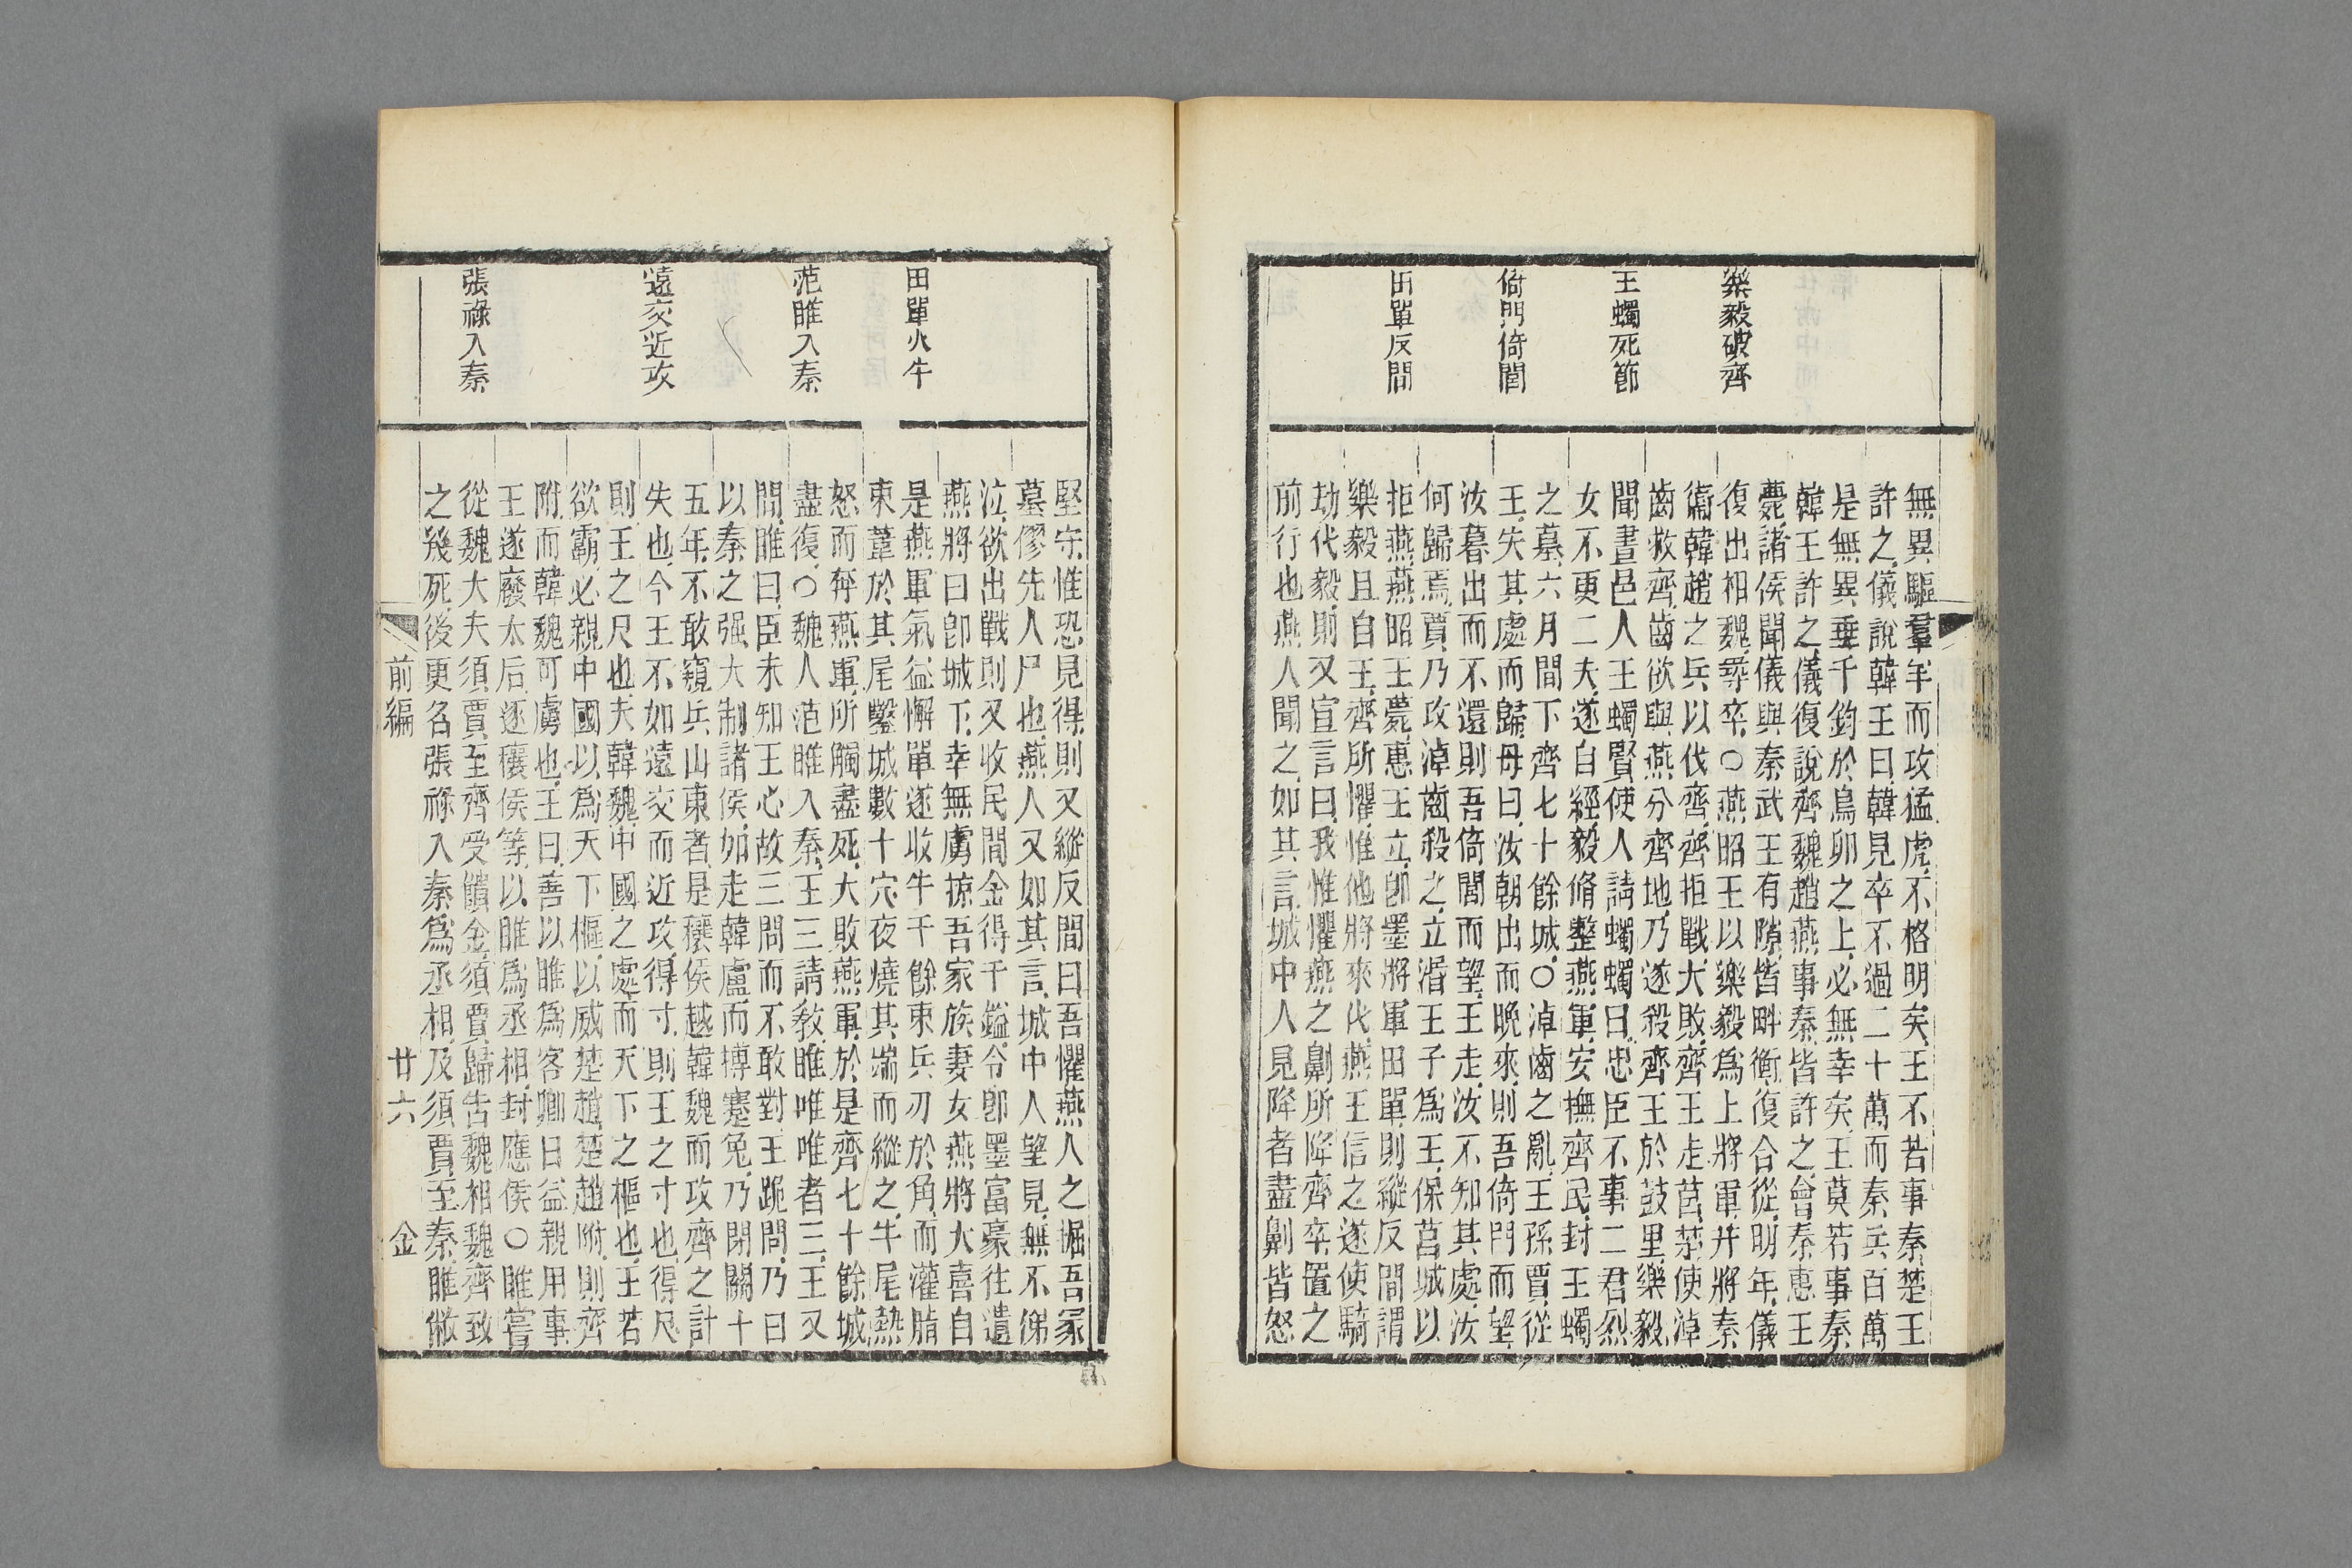 樂毅破齊
王蠋死節
倚門倚閭
田單反間
無異驅羣羊而攻猛虎不格明矣王不若事秦楚王
許之儀說韓王曰韓見卒不過二十萬而秦兵百萬
是無異垂千鈞於鳥卵之上必無幸矣王莫若事秦
韓王許之儀復說齊魏趙燕事秦皆許之會秦惠王
薨諸侯聞儀與秦武王有隙皆畔衡復合從明年儀
復出相魏尋卒○燕昭王以樂毅爲上將軍并將秦
衞韓趙之兵以伐齊齊拒戰大敗齊王走莒楚使淖
齒救齊齒欲與燕分齊地乃遂殺齊王於鼓里樂毅
聞晝邑人王蠋賢使人請蠋蠋曰忠臣不事二君烈
女不更二夫遂自經毅脩整燕軍安撫齊民封王蠋
之墓六月間下齊七十餘城○淖齒之亂王孫賈從
王失其處而歸母曰汝朝出而晩來則吾倚門而望
汝暮出而不還則吾倚閭而望王走汝不知其處汝
何歸焉賈乃攻淖齒殺之立湣王子爲王保莒城以
拒燕燕昭王薨惠王立卽墨將軍田單則縱反間謂
樂毅且自王齊所懼惟他將來代燕王信之遂使騎
劫代毅則又宣言曰我惟懼燕之劓所降齊卒置之
前行也燕人聞之如其言城中人見降者盡劓皆怒
田單火牛
范睢入秦
遠交近攻
張祿入秦
堅守惟恐見得則又縱反間曰吾懼燕人之掘吾冢
墓僇先人尸也燕人又如其言城中人望見無不涕
泣欲出戰則又收民間金得千鎰令卽墨富豪往遺
燕將曰卽城下幸無虜掠吾家族妻女燕將大喜自
是燕軍氣益懈單遂收牛千餘束兵刃於角而灌脂
束葦於其尾鑿城數十穴夜燒其端而縱之牛尾熱
怒而奔燕軍所觸盡死大敗燕軍於是齊七十餘城
盡復○魏人范睢入秦王三請教睢唯唯者三王又
問睢曰臣未知王心故三問而不敢對王跪問乃曰
以秦之强大制諸侯如走韓盧而搏蹇兔乃閉關十
五年不敢窺兵山東者是穰侯越韓魏而攻齊之計
失也今王不如遠交而近攻得寸則王之寸也得尺
則王之尺也夫韓魏中國之處而天下之樞也王若
欲霸必親中國以爲天下樞以威楚趙楚趙附則齊
附而韓魏可虜也王曰善以睢爲客卿日益親用事
王遂廢太后逐穰侯等以睢爲丞相封應侯○睢嘗
從魏大夫須賈至齊受饋金須賈歸告魏相魏齊致
之幾死後更名張祿入秦爲丞相及須賈至秦睢敝
前編　廿六　金